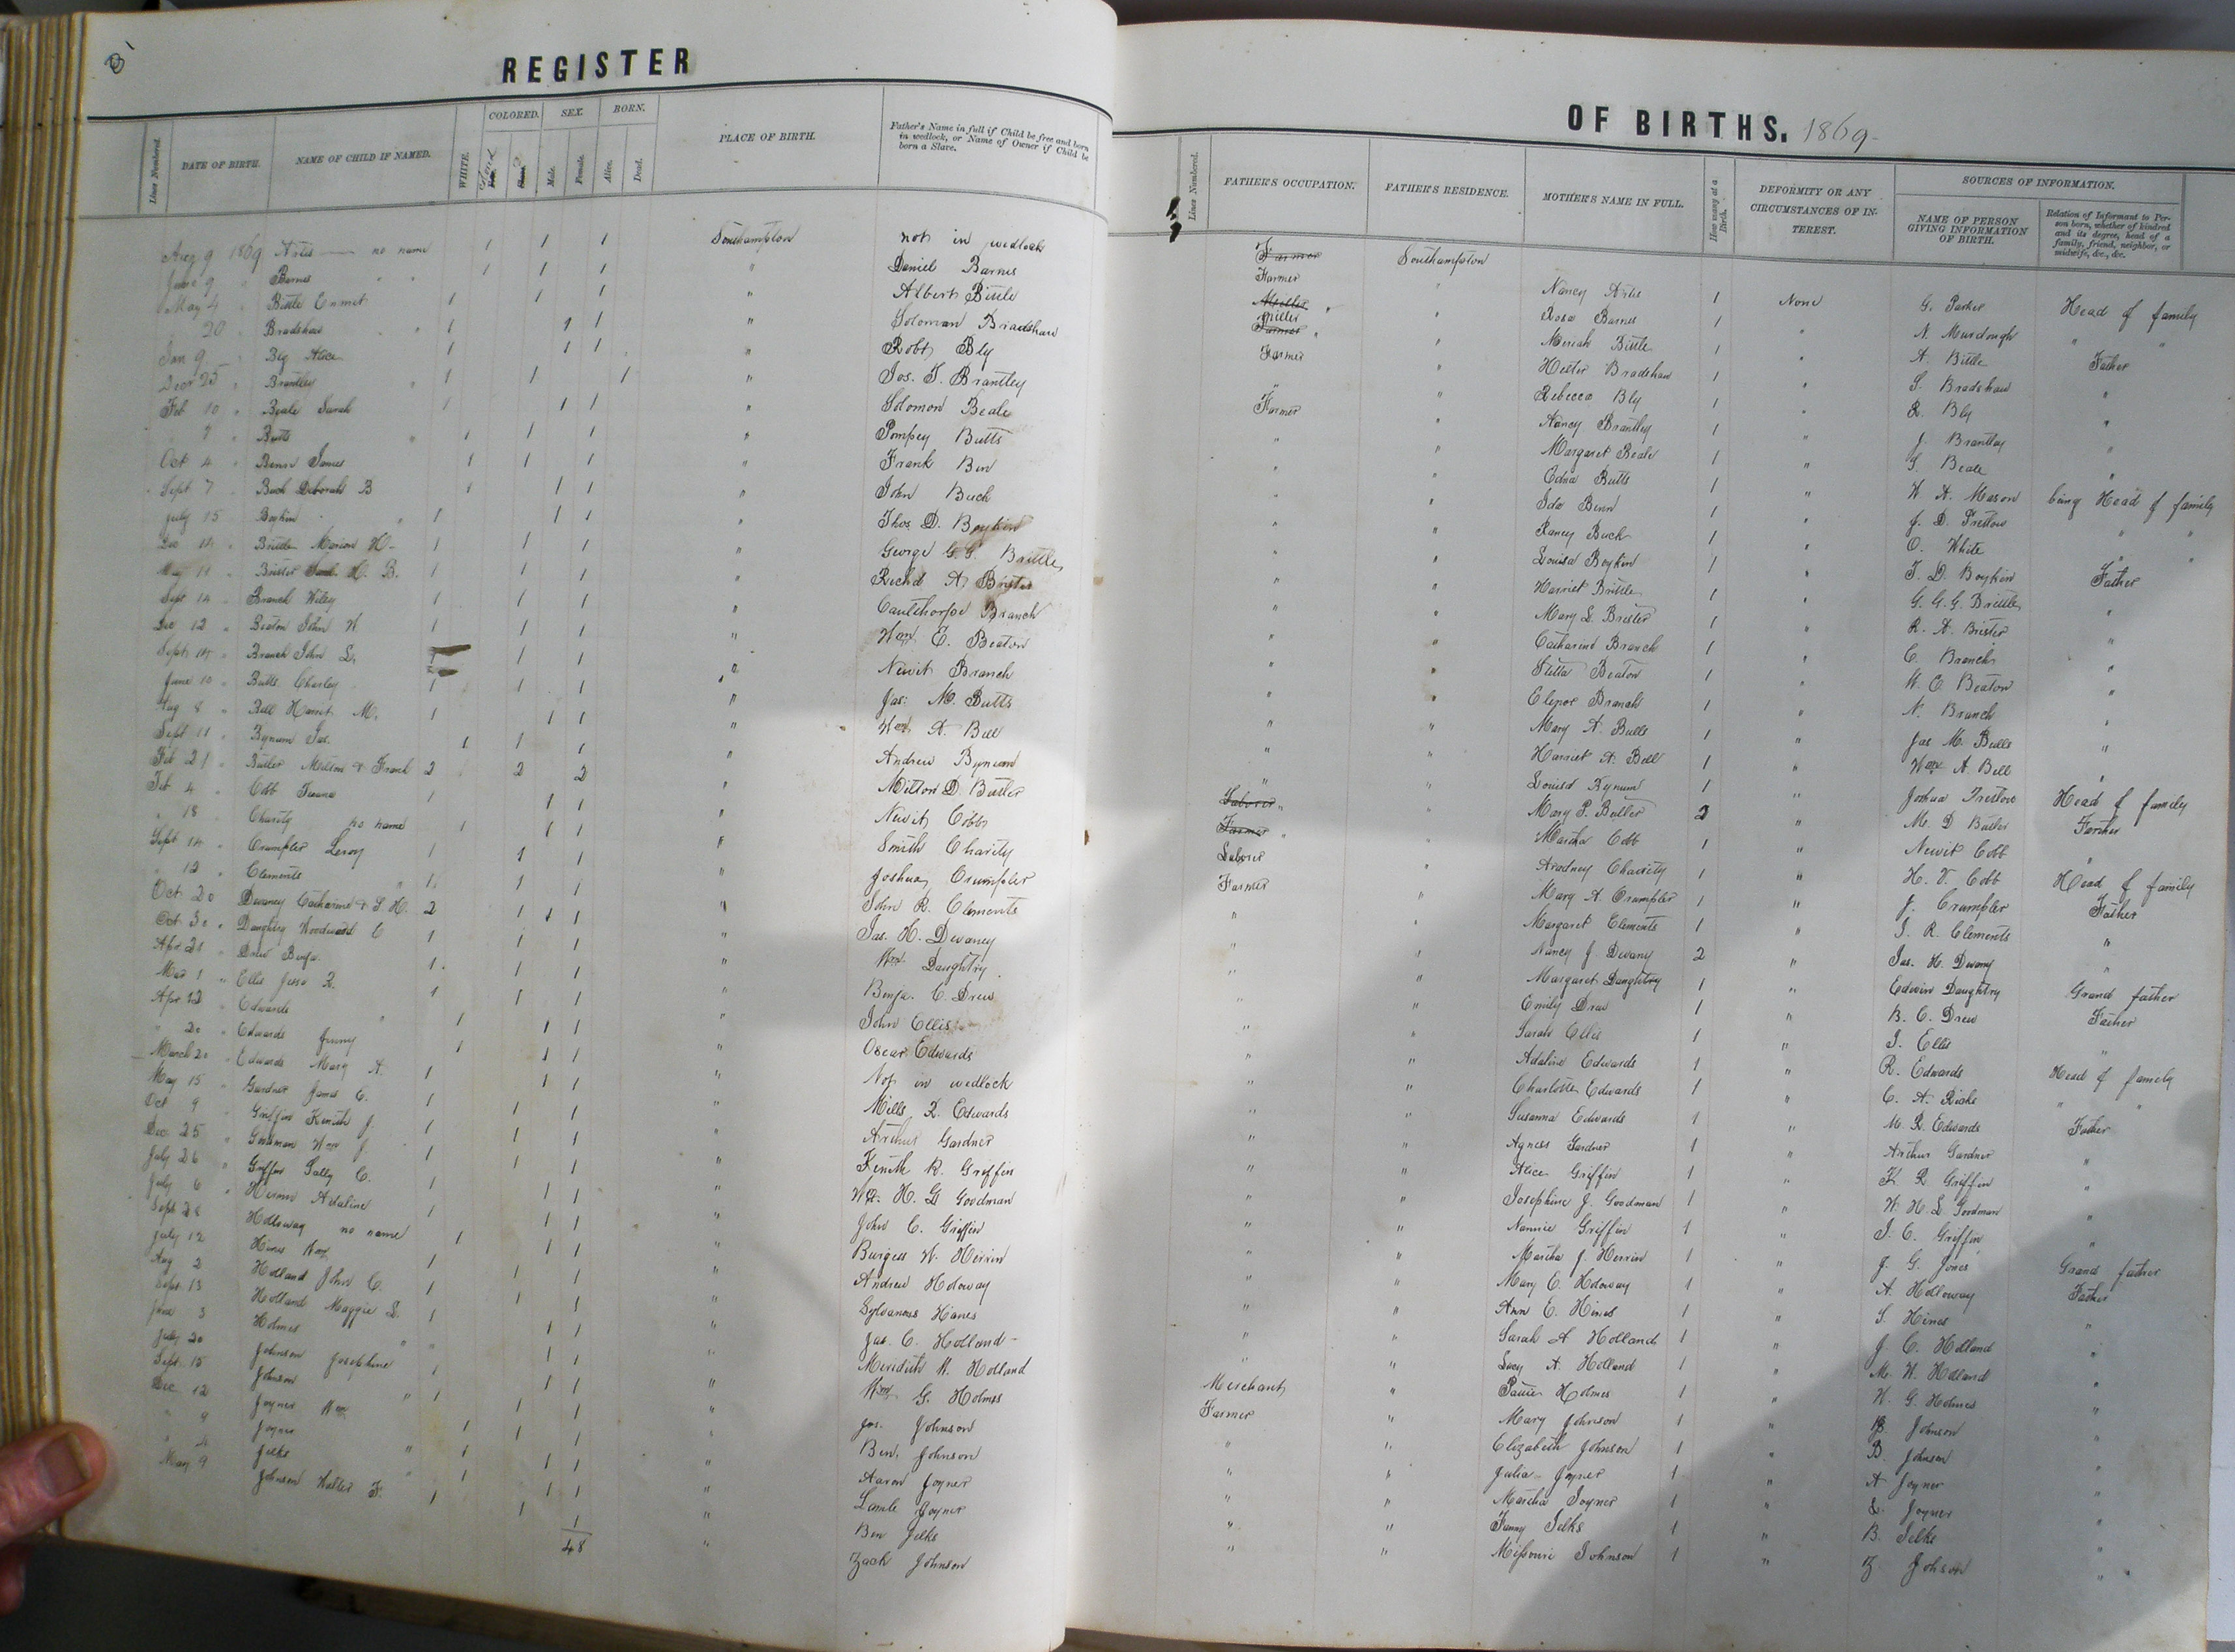 REGISTER
COLORED. SEX. BORN.
Lines Numbered.
DATE OF BIRTH.
NAME OF CHILD IF NAMED.
WHITE.
Male.
Female.
Alive.
Dead.
PLACE OF BIRTH.
Father's Name in full if Child be free and born
in wedlock, or Name of Owner if Child be
born a Slave.
Aug 9 1869 Artis no name 1 1 1 Southampton not in wedlock
June 9 " Barnes " " 1 1 1 " Daniel Barnes
May 4 " Bittle Emmet 1 1 1 " Albert Bittle
20 " Bradshaw " 1 1 1 " Solomon Bradshaw
Jan 9 " Bly Alice 1 1 1 " Robt Bly
25 " Brantley " 1 1 1 " Jos. T. Brantley
Feb 10 " Beale Sarah 1 1 1 " Solomon Beale
7 " Butts " 1 1 1 " Pompey Butts
Oct 4 " James 1 1 1 " Frank Ben
Sept 7 " Buck Deborah B 1 1 1 " John Buck
July 15 " Boykin " 1 1 1 " Thos D. Boykin
Dec 14 " Brittle Marion H. 1 1 1 " George G. G. Brittle
May 11 " Brister H. B. 1 1 1 " Richd A. Brister
Sept 14 " Branch Wiley 1 1 1 " Caulthorpe Branch
Dec 12 " Beaton John W 1 1 1 " Wm. E. Beaton
Sept " Branch John L. 1 1 " Newit Branch
June 10 " Butts Charley 1 1 1 " Jas. M. Butts
Aug 8 " Bell Harriet M. 1 1 1 " Wm A. Bell
Sept 11 " Bynum Jas. 1 1 1 " Andrew Bynum
Feb 21 " Butler Milton & Frank 2 2 2 " Milton D. Butler
Feb 4 " Cobb 1 1 1 " Newit Cobb
" 18 Charity no name 1 1 1 " Smith Charity
Sept 14 " Crumpler Leroy 1 1 1 " Joshua Crumpler
" 12 " Clements " 1 1 1 " John R. Clements
Oct 20 Dewaney Catharine & S. H. 2 1 1 1 " Jas. H. Dewaney
Oct 30 " Daughtry Woodward C 1 1 1 " Wm Daughtry
Apr 21 " Drew Benja. 1 1 1 " Benja. C. Drew
Mar 1 " Ellis Jesse R. 1 1 1 " John Ellis
Apr 12 " Edwards " 1 1 1 " Oscar Edwards
" 20 " Edwards Jenny 1 1 1 " Not in wedlock
March 20 " Edwards Mary A. 1 1 1 " Mills R. Edwards
May 15 " Gardner James E. 1 1 1 " Arthur Gardner
Oct 9 " Griffin Kenith J. 1 1 1 " Kenith R. Griffin
Dec. 25 " Goodman Wm J. 1 1 1 " Wm. H. G Goodman
July 26 " Griffin Sally C. 1 1 1 " John C. Griffin
July 6 " Adaline 1 1 1 " Burgess W. Herrin
Sept Holloway no name 1 1 1 " Andrew Holoway
July 12 Hines Wm 1 1 1 " Sylvanus Hines
Aug 2 Holland John C. 1 1 1 " Jas. C. Holland
Sept. 13 Holland Maggie L. 1 1 1 " Meredith W. Holland
June 3 Holmes " 1 1 " Wm G. Holmes
July 20 Johnson Josephine 1 1 " Johnson
Sept. 15 Johnson " 1 1 1 " Ben. Johnson
Dec 12 Joyner Wm 1 1 1 " Aaron Joyner
" 9 Joyner 1 1 1 " Joyner
" 4 Jelks " 1 1 1 " Ben Jelks
May 9 Johnson Walter F. 1 1 1 " Zach Johnson
48
OF BIRTHS. 1869-
Lines Numbered.
FATHER'S OCCUPATION.
FATHER'S RESIDENCE.
MOTHER'S NAME IN FULL.
How many at a Birth.
DEFORMITY OR ANY
CIRCUMSTANCES OF IN-
TEREST.
SOURCES OF INFORMATION.
NAME OF PERSON
GIVING INFORMATION
OF BIRTH.
Relation of Informant to Per-
son born, whether of kindred
and its degree, head of a
family, friend, neighbor, or
midwife, &c., &c.
Farmer Southampton Nancy Artis 1 None G. Parker Head of family
Farmer " Rosa Barnes 1 " N. Murdough " "
Miller " Meriah Bittle 1 " A. Bittle Father
Farmer " Hester Bradshaw 1 " S. Bradshaw "
Farmer " Rebecca Bly 1 " R. Bly "
" " Nancy Brantley 1 " J. Brantley "
Farmer " Margaret Beale 1 " S. Beale "
" " Edna Butts 1 " W. A. Mason being Head of family
" " Ida Benn 1 " J. D. Pretlow " "
" " Nancy Buck 1 " O. White " "
" " Louisa Boykin 1 " T. D. Boykin Father
" " Harriet Brittle 1 " G. G. G. Brittle "
" " Mary L. Brister 1 " R. A. Brister "
" " Catharine Branch 1 " C. Branch "
" " Beaton 1 " W. E. Beaton "
" " Elenor Branch 1 " N. Branch "
" " Mary A. Butts 1 " Jas M. Butts "
" " Harriet A. Bell 1 " Wm A. Bell "
" " Louisa Bynum 1 " Joshua Pretlow Head of family
" " Mary P. Butler 2 " M. D Butler Father
Laborer " " Martha Cobb 1 " Newit Cobb "
Farmer " " Charity 1 " H. V. Cobb Head of family
Laborer " Mary A. Crumpler 1 " J. Crumpler Father
Farmer " Margaret Clements 1 " J. R. Clements "
" " Nancy J. Dewany 2 " Jas. H. Dewany "
" " Margaret Daughtry 1 " Edwin Daughtry Grand father
" " Emily Drew 1 " B. C. Drew Father
" " Sarah Ellis 1 " J. Ellis "
" " Adaline Edwards 1 " R. Edwards Head of family
" " Charlotte Edwards 1 " C. A. Ricks " "
" " Susanna Edwards 1 " M. R. Edwards Father
" " Agness Gardner 1 " Arthur Gardner "
" " Alice Griffin 1 " K. R Griffin "
" " Josephine J. Goodman 1 " Goodman "
" " Nannie Griffin 1 " J. C. Griffin "
" " Martha J. Herrin 1 " J. G. Jones Grand father
" " Mary C. Holoway 1 " A. Holloway Father
" " Ann E. Hines 1 " S. Hines "
" " Sarah A Holland 1 " J. C. Holland "
" " Lucy A. Holland 1 " M. W. Holland "
Merchant " Holmes 1 " W. G. Holmes "
Farmer " Mary Johnson 1 " Johnson "
" " Elizabeth Johnson 1 " B. Johnson "
" " Julia Joyner 1 " A Joyner "
" " Martha Joyner 1 " Joyner "
" " Fanny Jelks 1 " B. Jelks "
" " Missouri Johnson 1 " Z. Johnson "